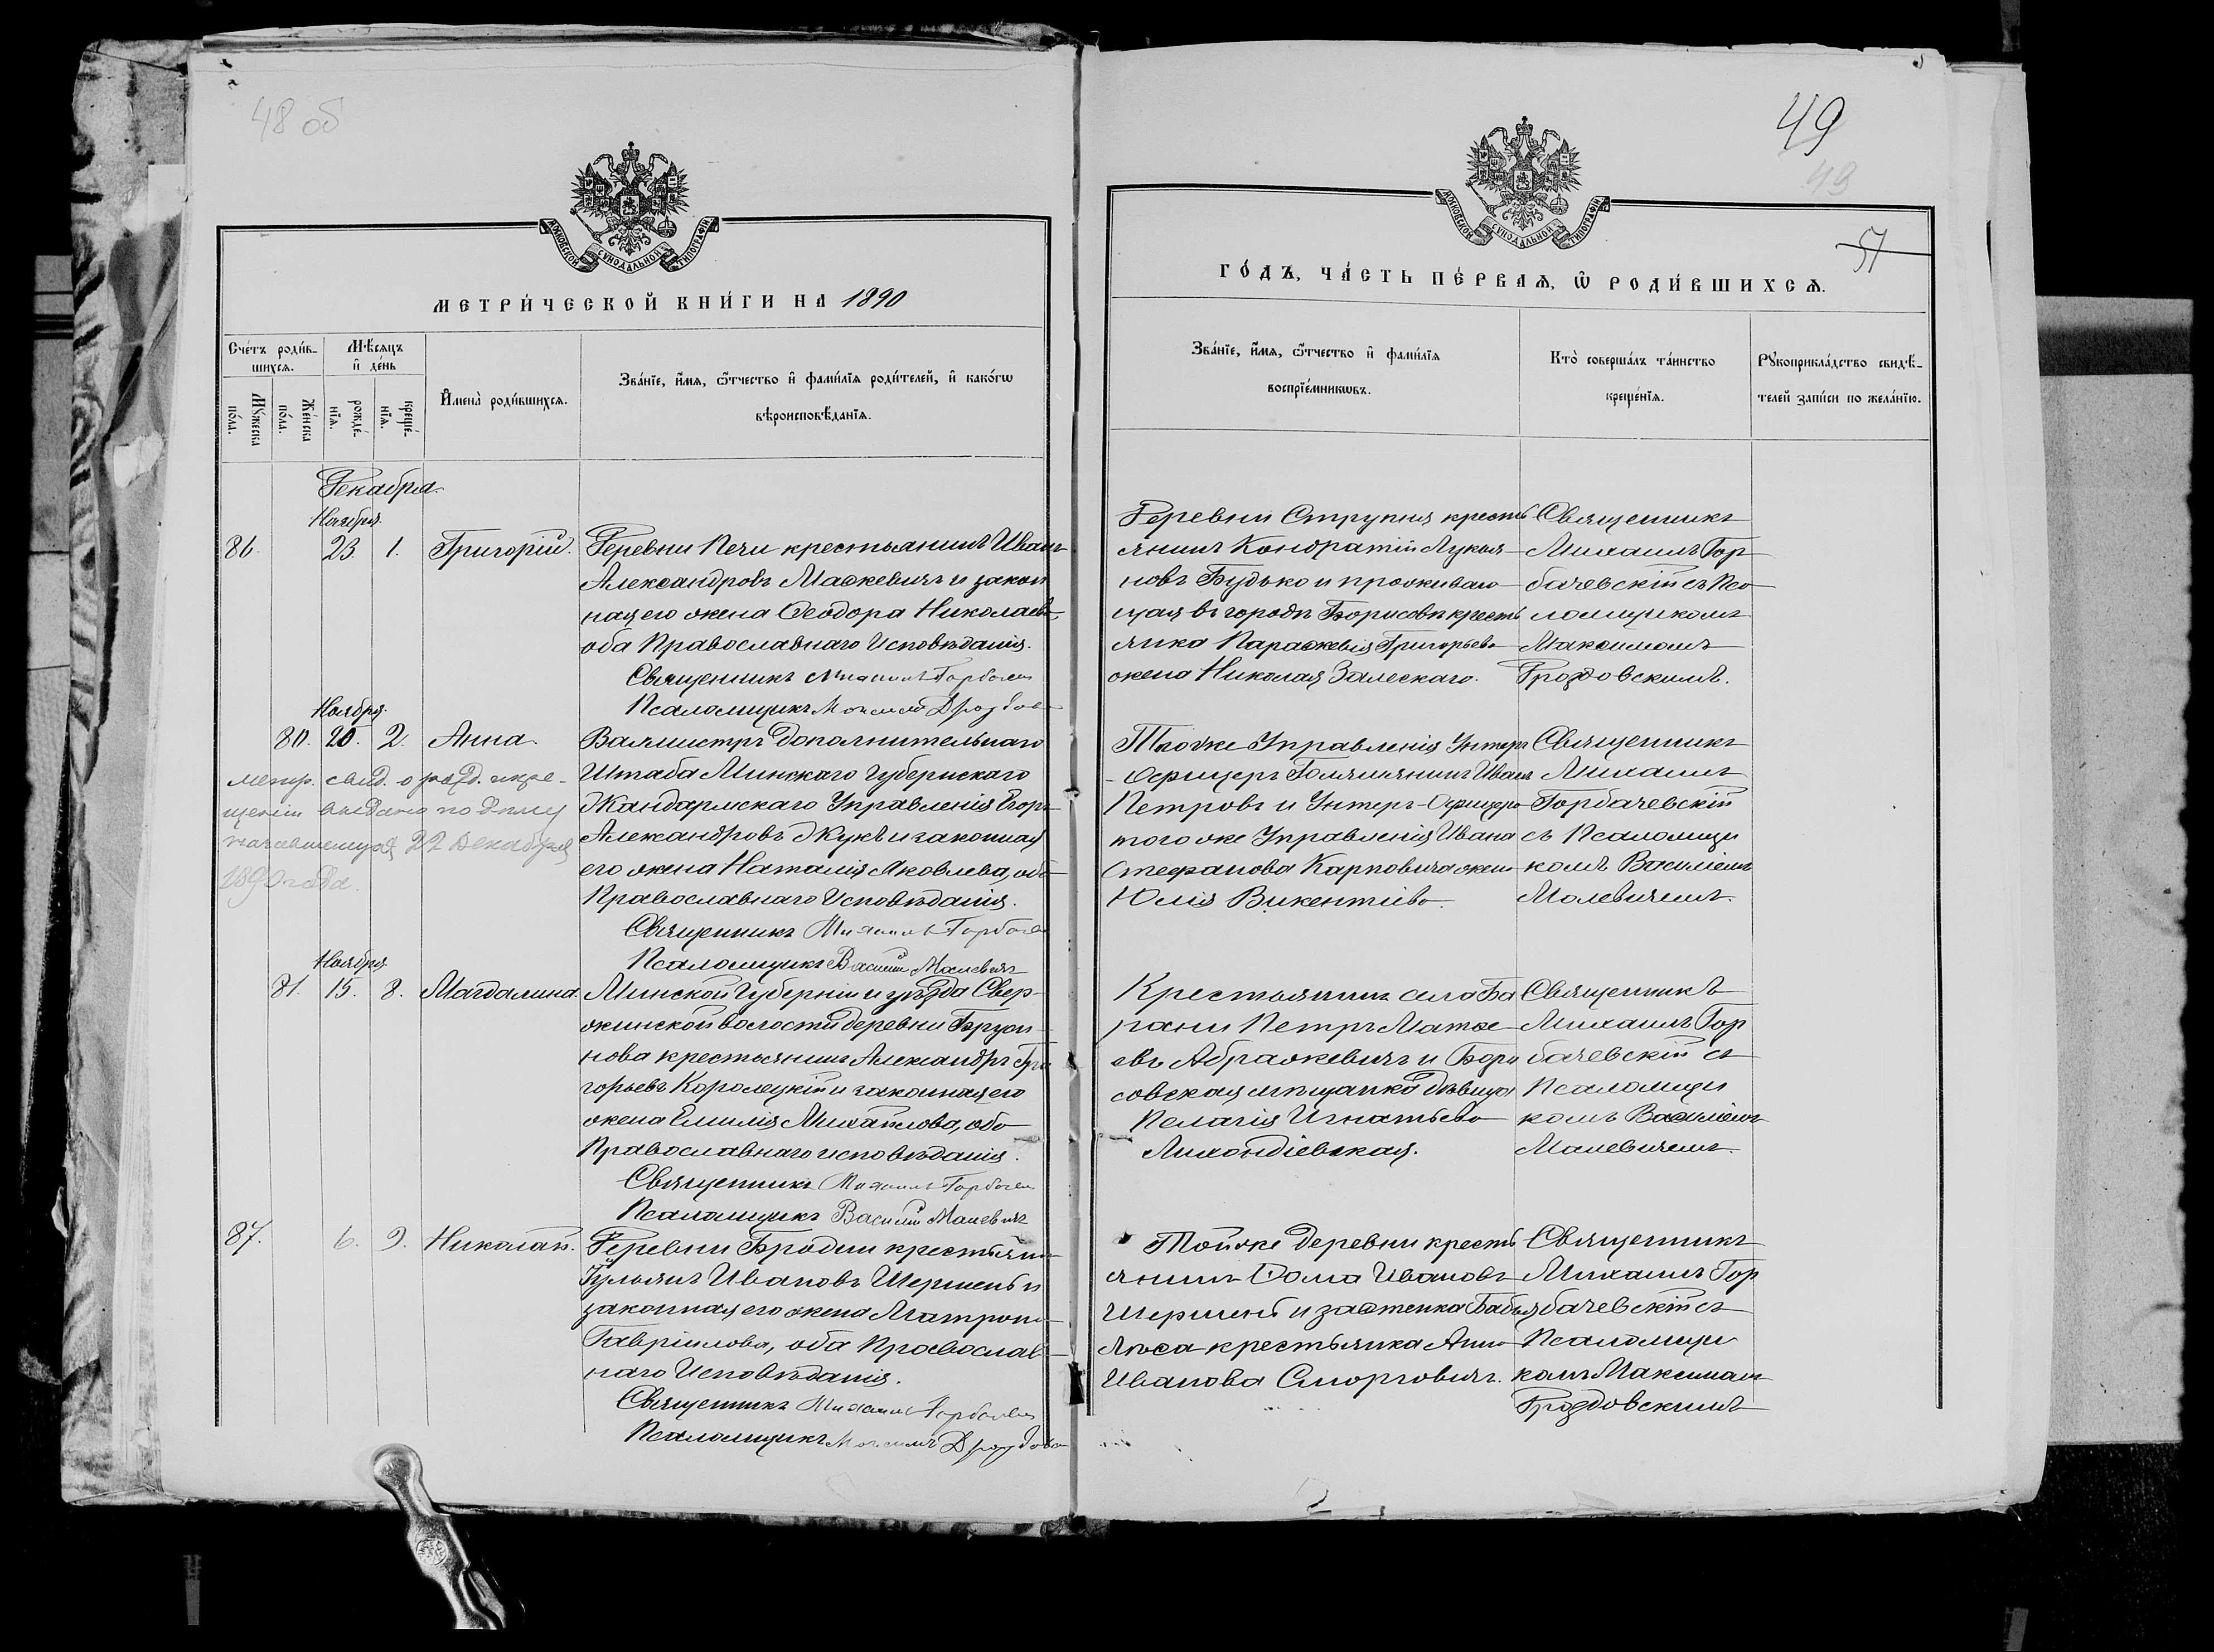 48 об
49
49
51
МОСКОВСКОЙ СѴНОДАЛЬНОЙ ТИПОГРАФІИ
МЕТРИ́ЧЕСКОЙ КНИ́ГИ НА 1890
Счéтъ роди́в-
шихсѧ.
Мꙋ́жеска
по́ла.
Же́нска
по́ла.
Мѣ́сѧцъ
и҆ де́нь
рожде́-
нїѧ.
креще́-
нїѧ.
И҆мена̀ роди́вшихсѧ.
Зва́нїе, и҆́мѧ, ѻ҆́тчество и҆ фами́лїѧ роди́телей, и҆ како́гѡ
вѣроисповѣ́данїѧ.
Декабря.
Ноября.
86. 23. 1. Григорій.
Деревни Печи крестьянинъ Иванъ
Александровъ Машкевичъ и закон
ная его жена Ѳеодора Николаева
оба Православнаго Исповѣданія.
Священникъ Михаилъ Горбачев
Псаломщикъ Максимъ Дроздов
Ноября.
80. 20. 2. Анна.
Вахмистръ Дополнительнаго
Штаба Минскаго Губернскаго
Жандармскаго Управленія Егоръ
Александровъ Жукъ и законная
его жена Наталія Яковлева, оба
Православнаго Исповѣданія.
Священникъ Михаилъ Горбачев
Псаломщикъ Василій Малевичъ
метр. свид. о рожд. и кре-
щеніи выдано по дѣлу
22 Декабря
1890 года.
Ноября
81. 15. 8. Магдалина.
Минской Губерніи и уѣзда Свер-
жинской волости деревни
нова крестьянинъ Александръ Гри
горьевъ Королецкій и законная его
жена Емилія Михайлова, оба
Православнаго исповѣданія.
Священникъ Михаилъ Горбачев
Псаломщикъ Василій Малевичъ
87. 6. 9. Николай.
Деревни Бродни крестьянин
Іульянъ Ивановъ Шершень и
законная его жена Матрона
Гавріилова, оба Православ-
наго Исповѣданія.
Священникъ Михаилъ Горбачев
Псаломщикъ Максимъ Дроздов
МОСКОВСКОЙ СѴНОДАЛЬНОЙ ТИПОГРАФІИ
ГО́ДЪ, ЧА́СТЬ ПЕ́РВАѦ, Ѽ РОДИ́ВШИХСѦ.
Зва́нїе, и҆́мѧ, ѻ҆́тчество и҆ фами́лїѧ
воспрїе́мникѡвъ.
Кто̀ соверша́лъ та́инство
креще́нїѧ.
Рꙋкоприкла́дство свидѣ́-
телей за́писи по жела́нїю.
Деревни Струпня кресть
янинъ Кондратій Лукья
новъ Будько и проживаю
щая въ городѣ Борисовѣ кресть
янка Параскевія Григорьева
жена Николая Залескаго.
Священникъ
Михаилъ Гор
бачевскій съ Пса
ломщикомъ
Максимомъ
Дроздовскимъ.
Того же Управленія Унтеръ
-Офицеръ Иванъ
Петровъ и Унтеръ-Офицера
того же Управленія Ивана
Стефанова Карповича жена
Юлія Викентіева.
Священникъ
Михаилъ
Горбачевскій
съ Псаломщи
комъ Василіемъ
Малевичемъ.
Крестьянинъ села Ба
рани Петръ Матѳе
евъ Абрашкевичъ и Бори
совская мѣщанка дѣвица
Пелагія Игнатьева
Священникъ
Михаилъ Гор
бачевскій съ
Псаломщи
комъ Василіемъ
Малевичемъ.
Той же деревни кресть
янинъ Ѳома Ивановъ
Шершень и застенка Бабья
Лоса крестьянка Анна
Иванова Сморговичъ.
Священникъ
Михаилъ Гор
бачевскій съ
Псаломщи
комъ Максимомъ
Дроздовскимъ